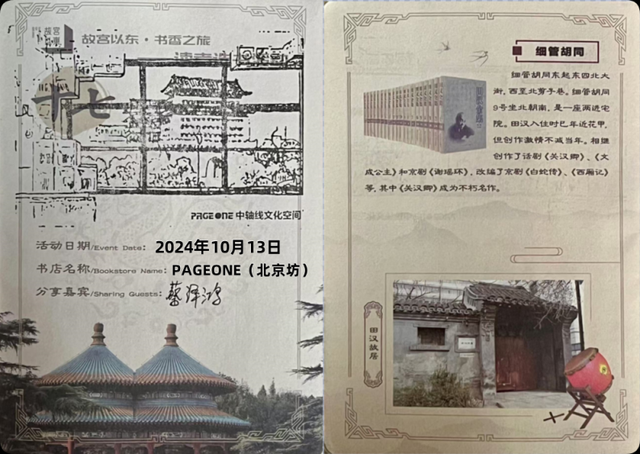 故宫以东·书香之旅
十七
PAGEONE 中轴线文化空间
活动日期/Event Date: 2024年10月13日
书店名称/Bookstore Name: PAGEONE（北京坊）
分享嘉宾/Sharing Guests:
细管胡同
细管胡同东起东四北大
街，西至北剪子巷。细管胡同
9号坐北朝南，是一座两进宅
院。田汉入住时已年近花甲，
但创作激情不减当年。相继
创作了话剧《关汉卿》、《文
成公主》和京剧《谢瑶环》，改编了京剧《白蛇传》、《西厢记》
等，其中《关汉卿》成为不朽名作。
田汉故居